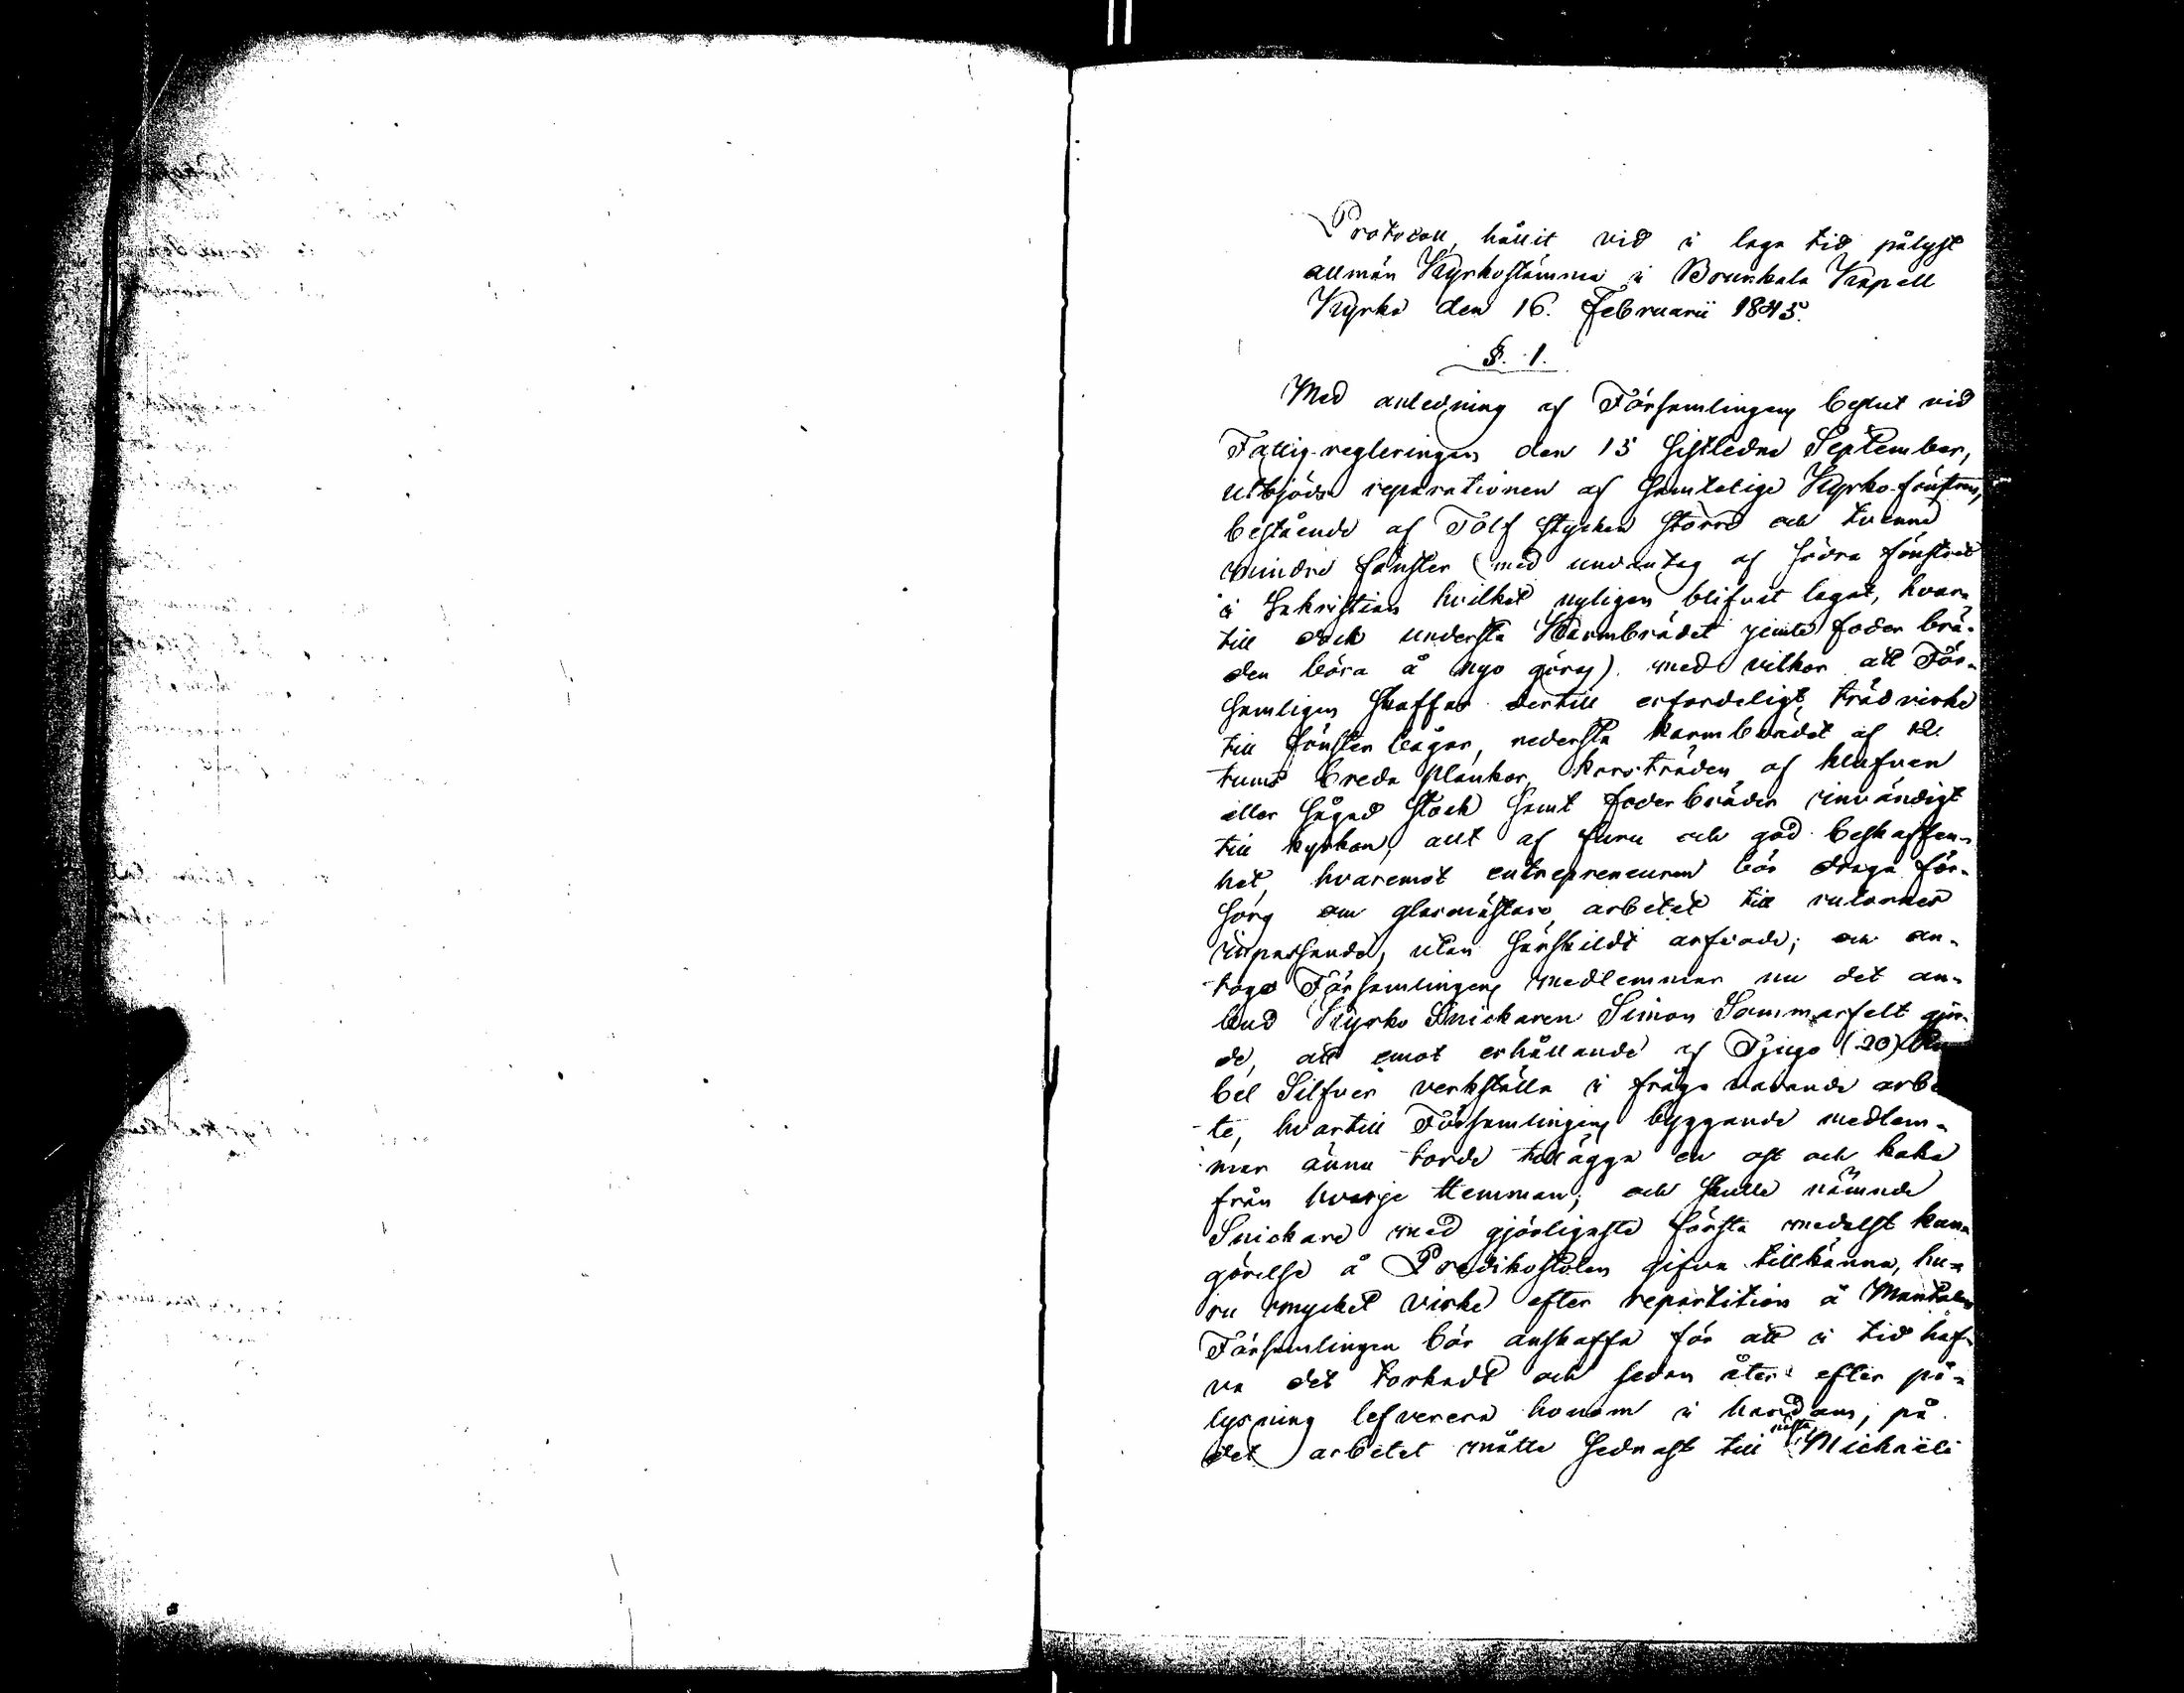 Protocoll, hållit vid i laga tid pålyst
allmän Kyrkostämma i Brunkala Kapell
Kyrka den 16. Februarii 1845.
§. 1.
Med anledning af Församlingens beslut vid
Fattig-regleringen den 15 sistledne September,
utbjöds reparationen af samtelige Kyrko-fönstren,
bestående af Tolf stycken större och tvenne
mindre fönster (med undantag af södra fönstret
i Sakristian hvilket nyligen blifvit lagat, hvar-
till dock understa Karmbrädet jemte foder brä-
den böra å nyo göras) med vilkor att För-
samligen skaffar dertill erforderligt trädvirke
till fönster bågar, nedersta karmbrädet af 12
tums breda plankor, karmträden af klufven
eller sågad stock samt foderbräder invändigt
till kyrkan, allt af furu och god beskaffen-
het, hvaremot entrepreneuren bör draga för-
sorg om glasmästare arbetet till rutornas
inpassande, utan särskildt arfvode; och an-
togo Församlingens medlemmar nu det an-
bud Kyrko Snickaren Simon Sommarfelt gjor-
de, att emot erhållande af Tjugo (20) Ru
bel Silfver verkställa i fråga varande arbe
te, hvartill Församlingens byggande medlem-
mar ännu torde tillägga en ost och kaka
från hvarje Hemman; och skulle nämnde
Snickare med görligaste första medelst kun-
görelse å Predikostolen gifva tillkänna, hu-
ru mycket virke efter repartition å Mantalen
Församlingen bör anskaffa för att i tid haf-
va det torkadt och sedan åter efter på-
lysning lefverera honom i handom, på
det arbetet måtte sednast till nästa Michaëli